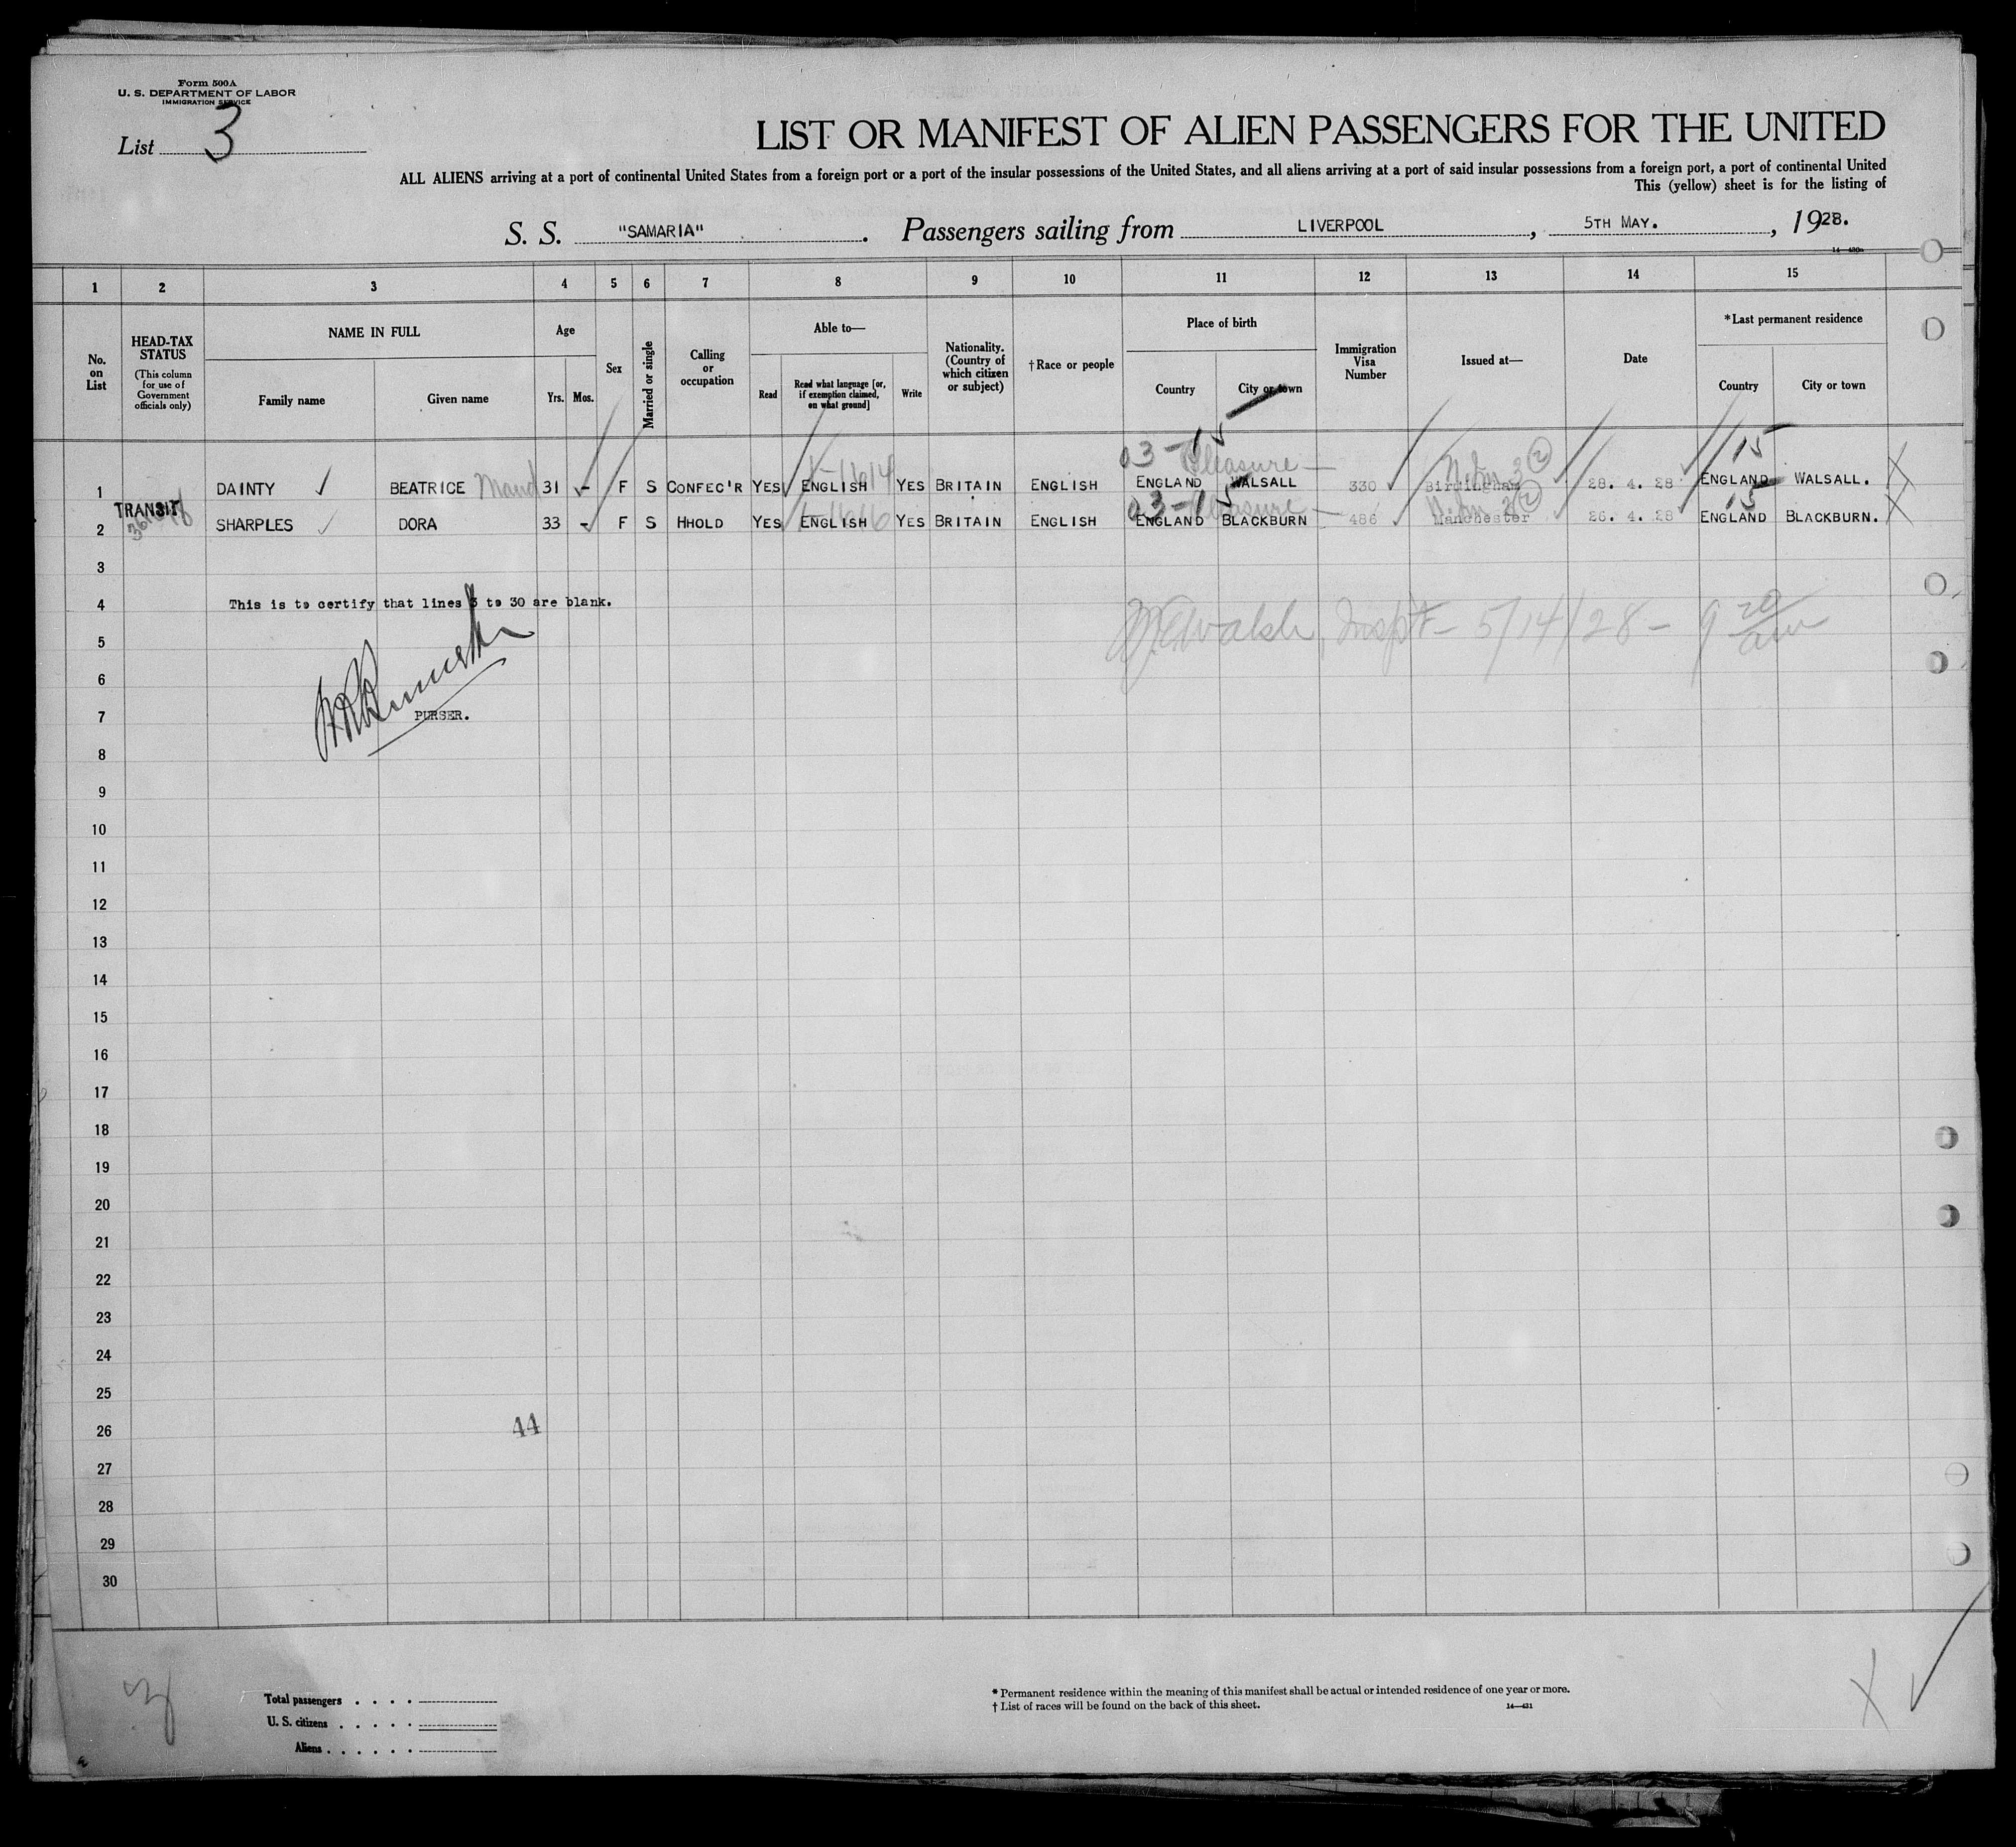 Form 500A
U. S. DEPARTMENT OF LABOR
IMMIGRATION SERVICE
List 3
LIST OR MANIFEST OF ALIEN PASSENGERS FOR THE UNITED
ALL ALIENS arriving at a port of continental United States from a foreign port or a port of the insular possessions of the United States, and all aliens arriving at a port of said insular possessions from a foreign port, a port of continental United
This (yellow) sheet is for the listing of
S. S. "SAMARIA". Passengers sailing from LIVERPOOL, 5TH MAY., 1928.
1 2 3 4 5 6 7 8 9 10 11 12 13 14 15
No. on List
HEAD-TAX STATUS
(This column for use of Government officials only)
NAME IN FULL
Family name
Given name
Age
Yrs. Mos.
Sex
Married or single
Calling or occupation
Able to—
Read
Read what language [or, if exemption claimed, on what ground]
Write
Nationality. (Country of which citizen or subject)
†Race or people
Place of birth
Country
City or town
Immigration Visa Number
Issued at—
Date
*Last permanent residence
Country
City or town
03-15 15
Pleasure
1 DAINTY BEATRICE Maud 31 - F S CONFEC'R YES ENGLISH YES BRITAIN ENGLISH ENGLAND WALSALL 330 Birmingham 28. 4. 28 ENGLAND WALSALL.
TRANSIT
03-15 Pleasure 15
2 SHARPLES DORA 33 - F S HHOLD YES ENGLISH YES BRITAIN ENGLISH ENGLAND BLACKBURN 486 Manchester 26. 4. 28 ENGLAND BLACKBURN.
3
4 This is to certify that lines 3 to 30 are blank.
Walsh, Inspt - 5/14/28 - 9 20 am
5
6
7 PURSER.
8
9
10
11
12
13
14
15
16
17
18
19
20
21
22
23
24
25
26 44
27
28
29
30
Total passengers . . . .
U. S. citizens . . . . .
Aliens . . . . . .
* Permanent residence within the meaning of this manifest shall be actual or intended residence of one year or more.
† List of races will be found on the back of this sheet. 14—421